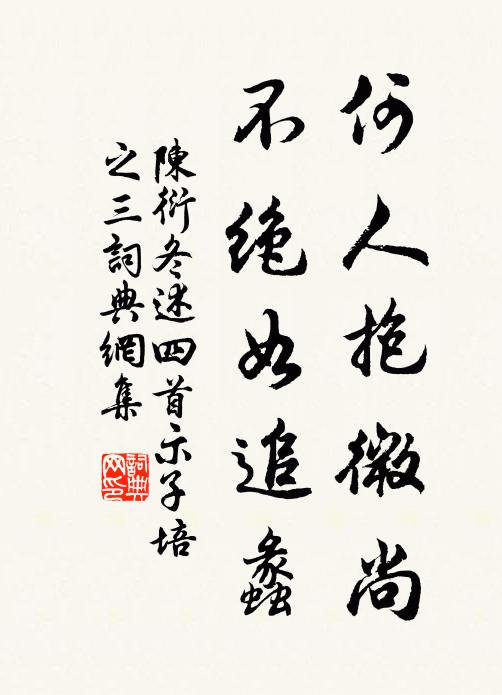 何人抱微尚
不絕如追蠡
陳衍冬述四首示子培
之三詞典網集
詞典網印